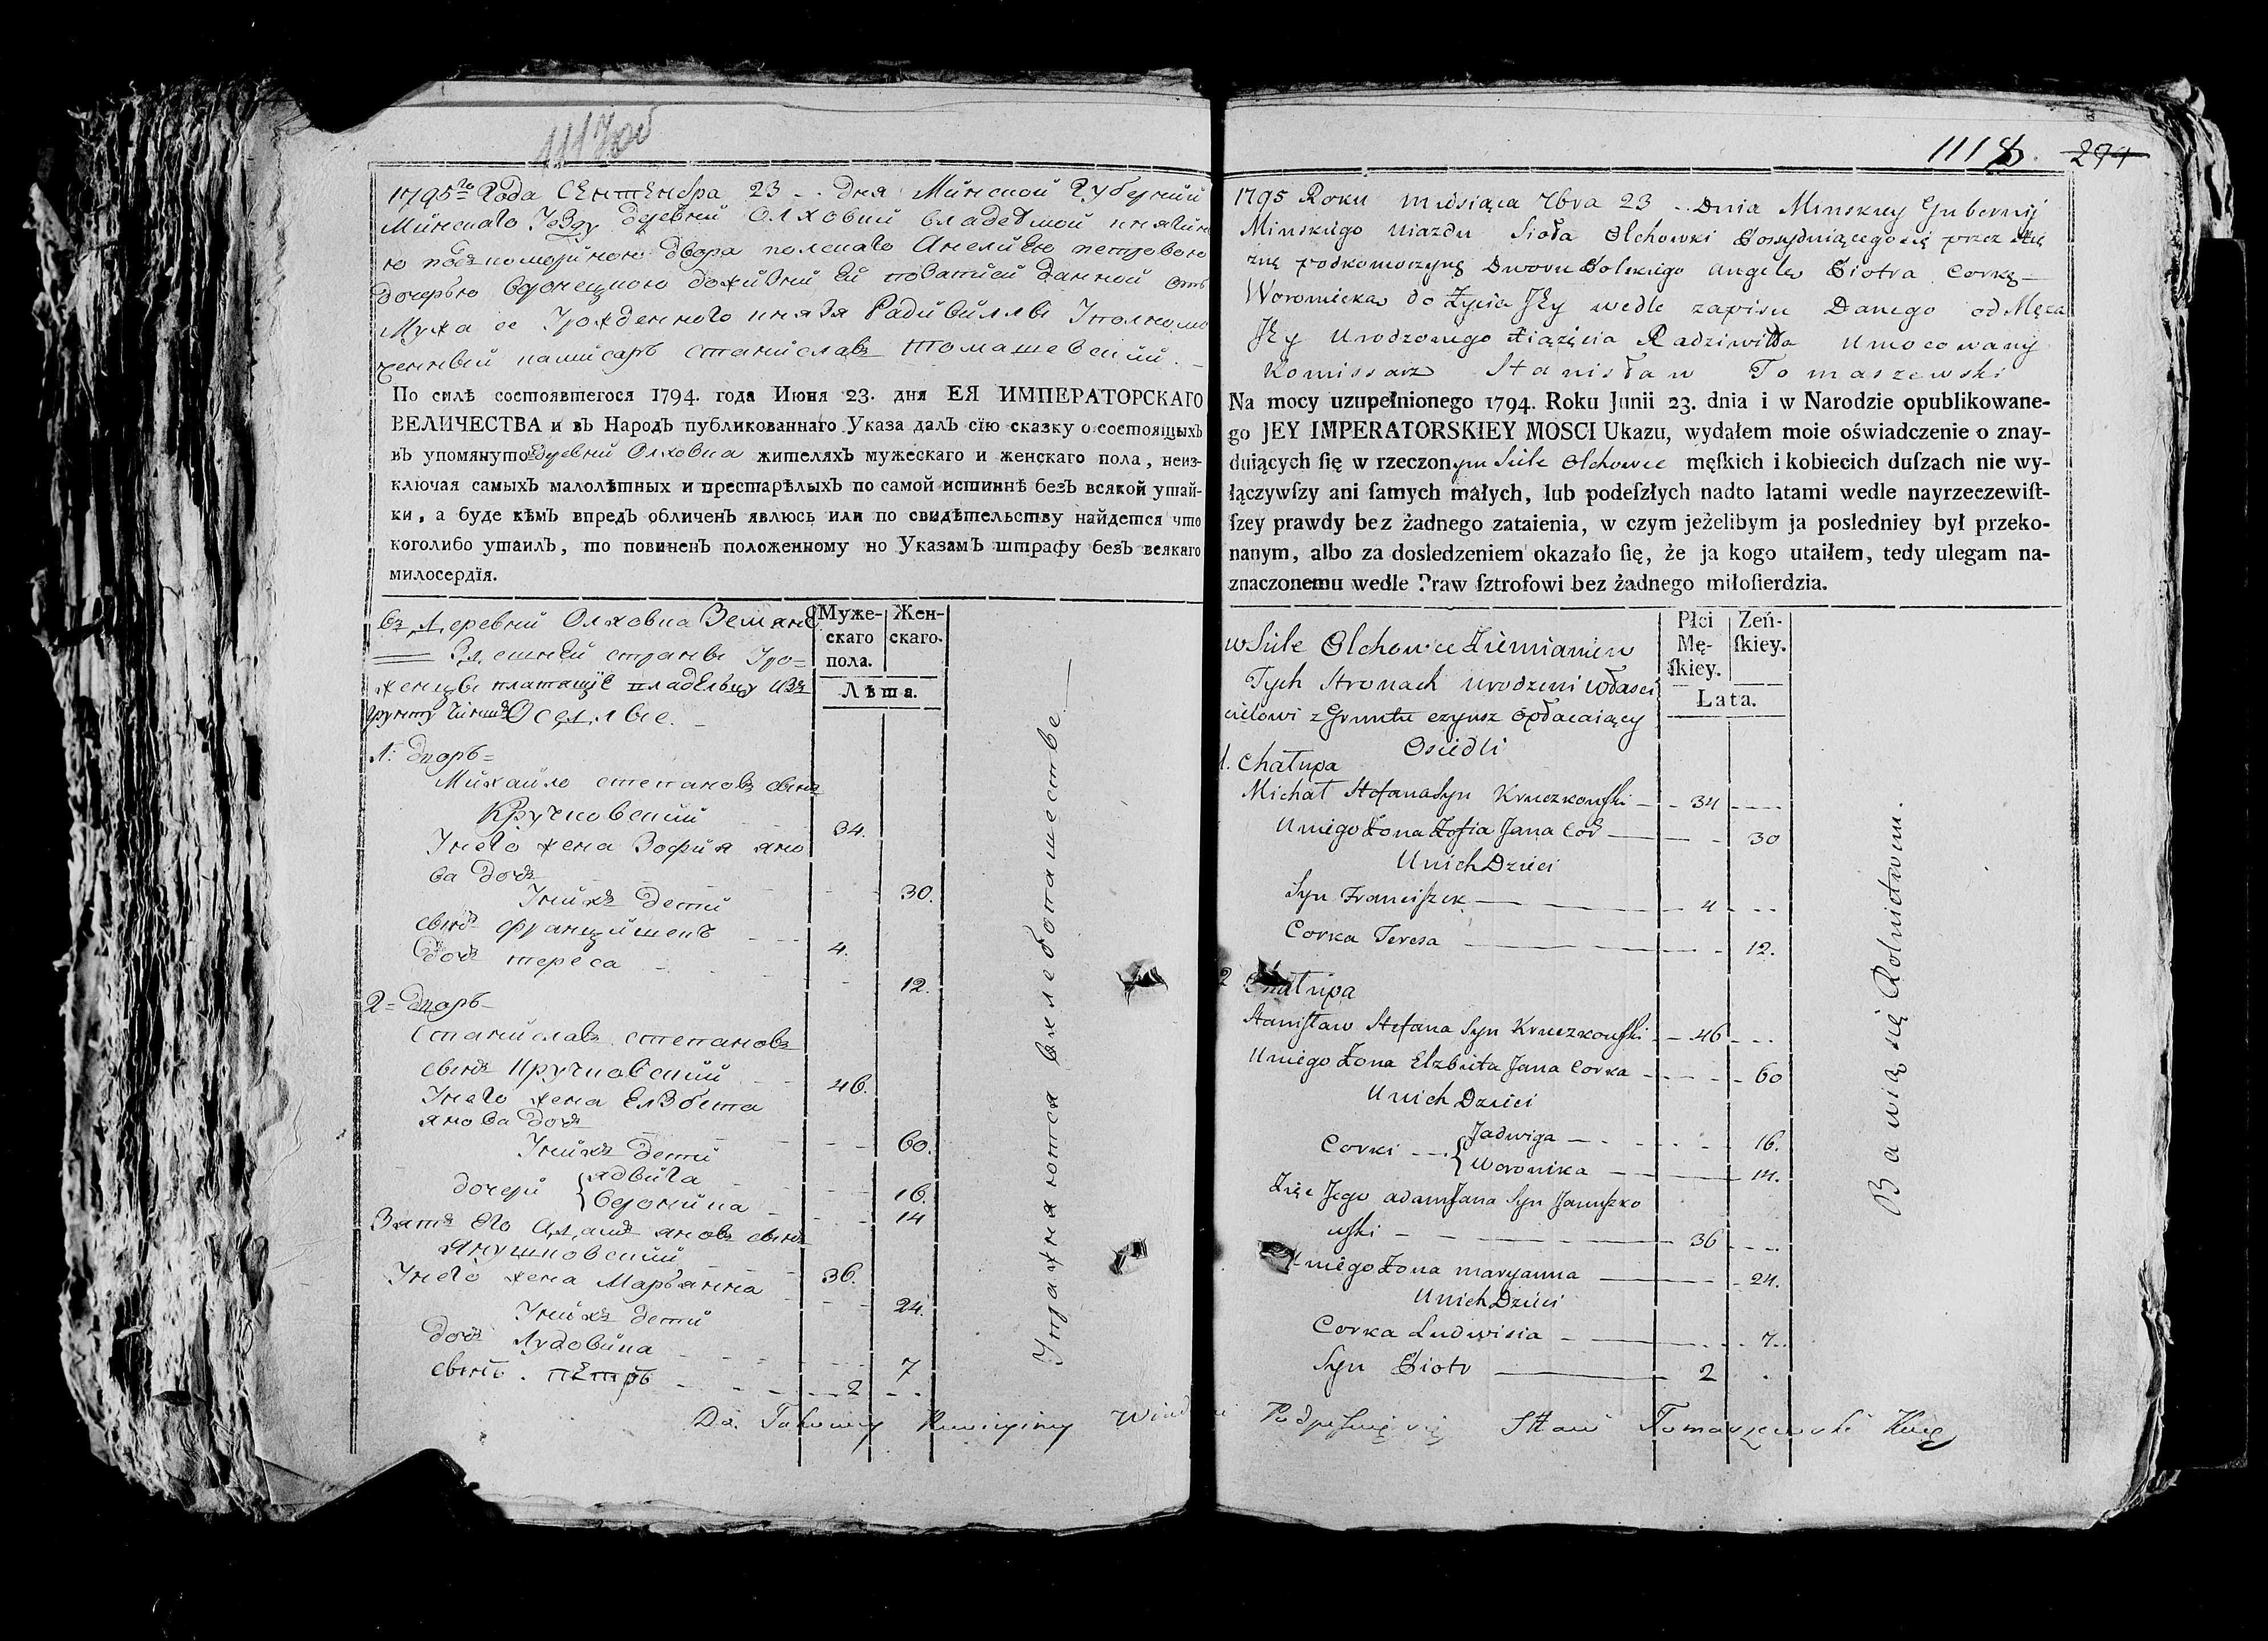 1117об
1795го Года СЕнтЕнбра 23 дня Минской Губернии
Минскаго Уезду деревни Олховки владеемой княгин
ю подкоморйною двора полскаго Анелиею петровою
дочерью
Мужа ее Урожденного князя Радивиллы Уполномо
ченный камисаръ станиславъ томашевский
По силѣ состоявшегося 1794. года Июня 23. дня ЕЯ ИМПЕРАТОРСКАГО
ВЕЛИЧЕСТВА и въ Народъ публикованнаго Указа далъ сїю сказку о состоящыхъ
въ упомянуто деревни Олховка жителяхъ мужескаго и женскаго пола, неиз-
ключая самыхъ малолѣтных и престарѣлыхъ по самой истиннѣ безъ всякой утай-
ки, а буде кѣмъ впредь обличенъ явлюсь или по свидѣтельству найдется что
коголибо утаилъ, то повиненъ положенному по Указамъ штрафу безъ всякаго
милосердїя.
въ Деревни Олховка Земяне
Здешней страны Уро=
женцы платящие владельцу изъ
грунту чиншъ Оседлые.
Муже-
скаго
пола.
Жен-
скаго.
Лѣта.
1. дворъ=
Михайло степановъ сынъ
Кручковский 34.
У него жена Зофия яно
ва дочъ 30.
У нихъ дети
сынъ францишекъ 4.
дочъ тереса 12.
2= дворъ
Станиславъ степановъ
сынъ кручковский 46.
У него жена Елзбета
янова дочъ 60.
У нихъ дети
дочери { ядвига 16.
вероника 14
Зять его Адамъ яновъ сынъ
янушковский 36.
У него жена Марьянна 24.
У нихъ дети
дочъ Лудовика 7
сынъ. пЕтръ 2
Упражняются в хлебопашестве
Da Takowey Rewizyiney
1118. 294
1795 Roku miesiąca 7bra 23 Dnia Minskiey Gubernij
Minskiego Uiazdu Sioła Olchowki Possyduiącegosię przez
żnę podkomorzynę Dworu Polskiego Angelę Piotra Corkę
Woronicką do Życia Jey wedle zapisu Danego od Męża
Jey Urodzonego Xiążęcia Radziwiłła Umocowany
Komissarz Stanisław Tomaszewski
Na mocy uzupełnionego 1794. Roku Junii 23. dnia i w Narodzie opublikowane-
go JEY IMPERATORSKIEY MOSCI Ukazu, wydałem moie oświadczenie o znay-
duiących ſię w rzeczonym Siele Olchowce męſkich i kobiecich duſzach nie wy-
łączywſzy ani ſamych małych, lub podeſzłych nadto latami wedle nayrzeczewiſt-
ſzey prawdy bez żadnego zataienia, w czym jeżelibym ja posledniey był przeko-
nanym, albo za dosledzeniem okazało ſię, że ja kogo utaiłem, tedy ulegam na-
znaczonemu wedle Praw ſztrofowi bez żadnego miłoſierdzia.
w Siele Olchowce Ziemianie w
Tych Stronach urodzeni Własci
cielowi z Gruntu czynsz opłacaiący
Osiedli
Płci
Mę-
ſkiey.
Zeń-
ſkiey.
Lata.
1. Chałupa
Michał Stefana Syn Kruczkowſki 34
U niego Żona Zofia Jana Cor 30
U nich Dzieci
Syn Franciſzek 4
Corka Teresa 12.
2 Chałupa
Stanisław Stefana Syn Kruczkowſki 46
U niego Żona Elzbieta Jana Corka 60
U nich Dzieci
Corki { Jadwiga 16.
Woronika 14.
Zięc Jego adam Jana Syn Januſzko
wſki 36
U niego Żona maryanna 24.
U nich Dzieci
Corka Ludwisia 7.
Syn Piotr 2
Bawią się Rolnictwem.
Podpisuię się Stław Tomaszewski